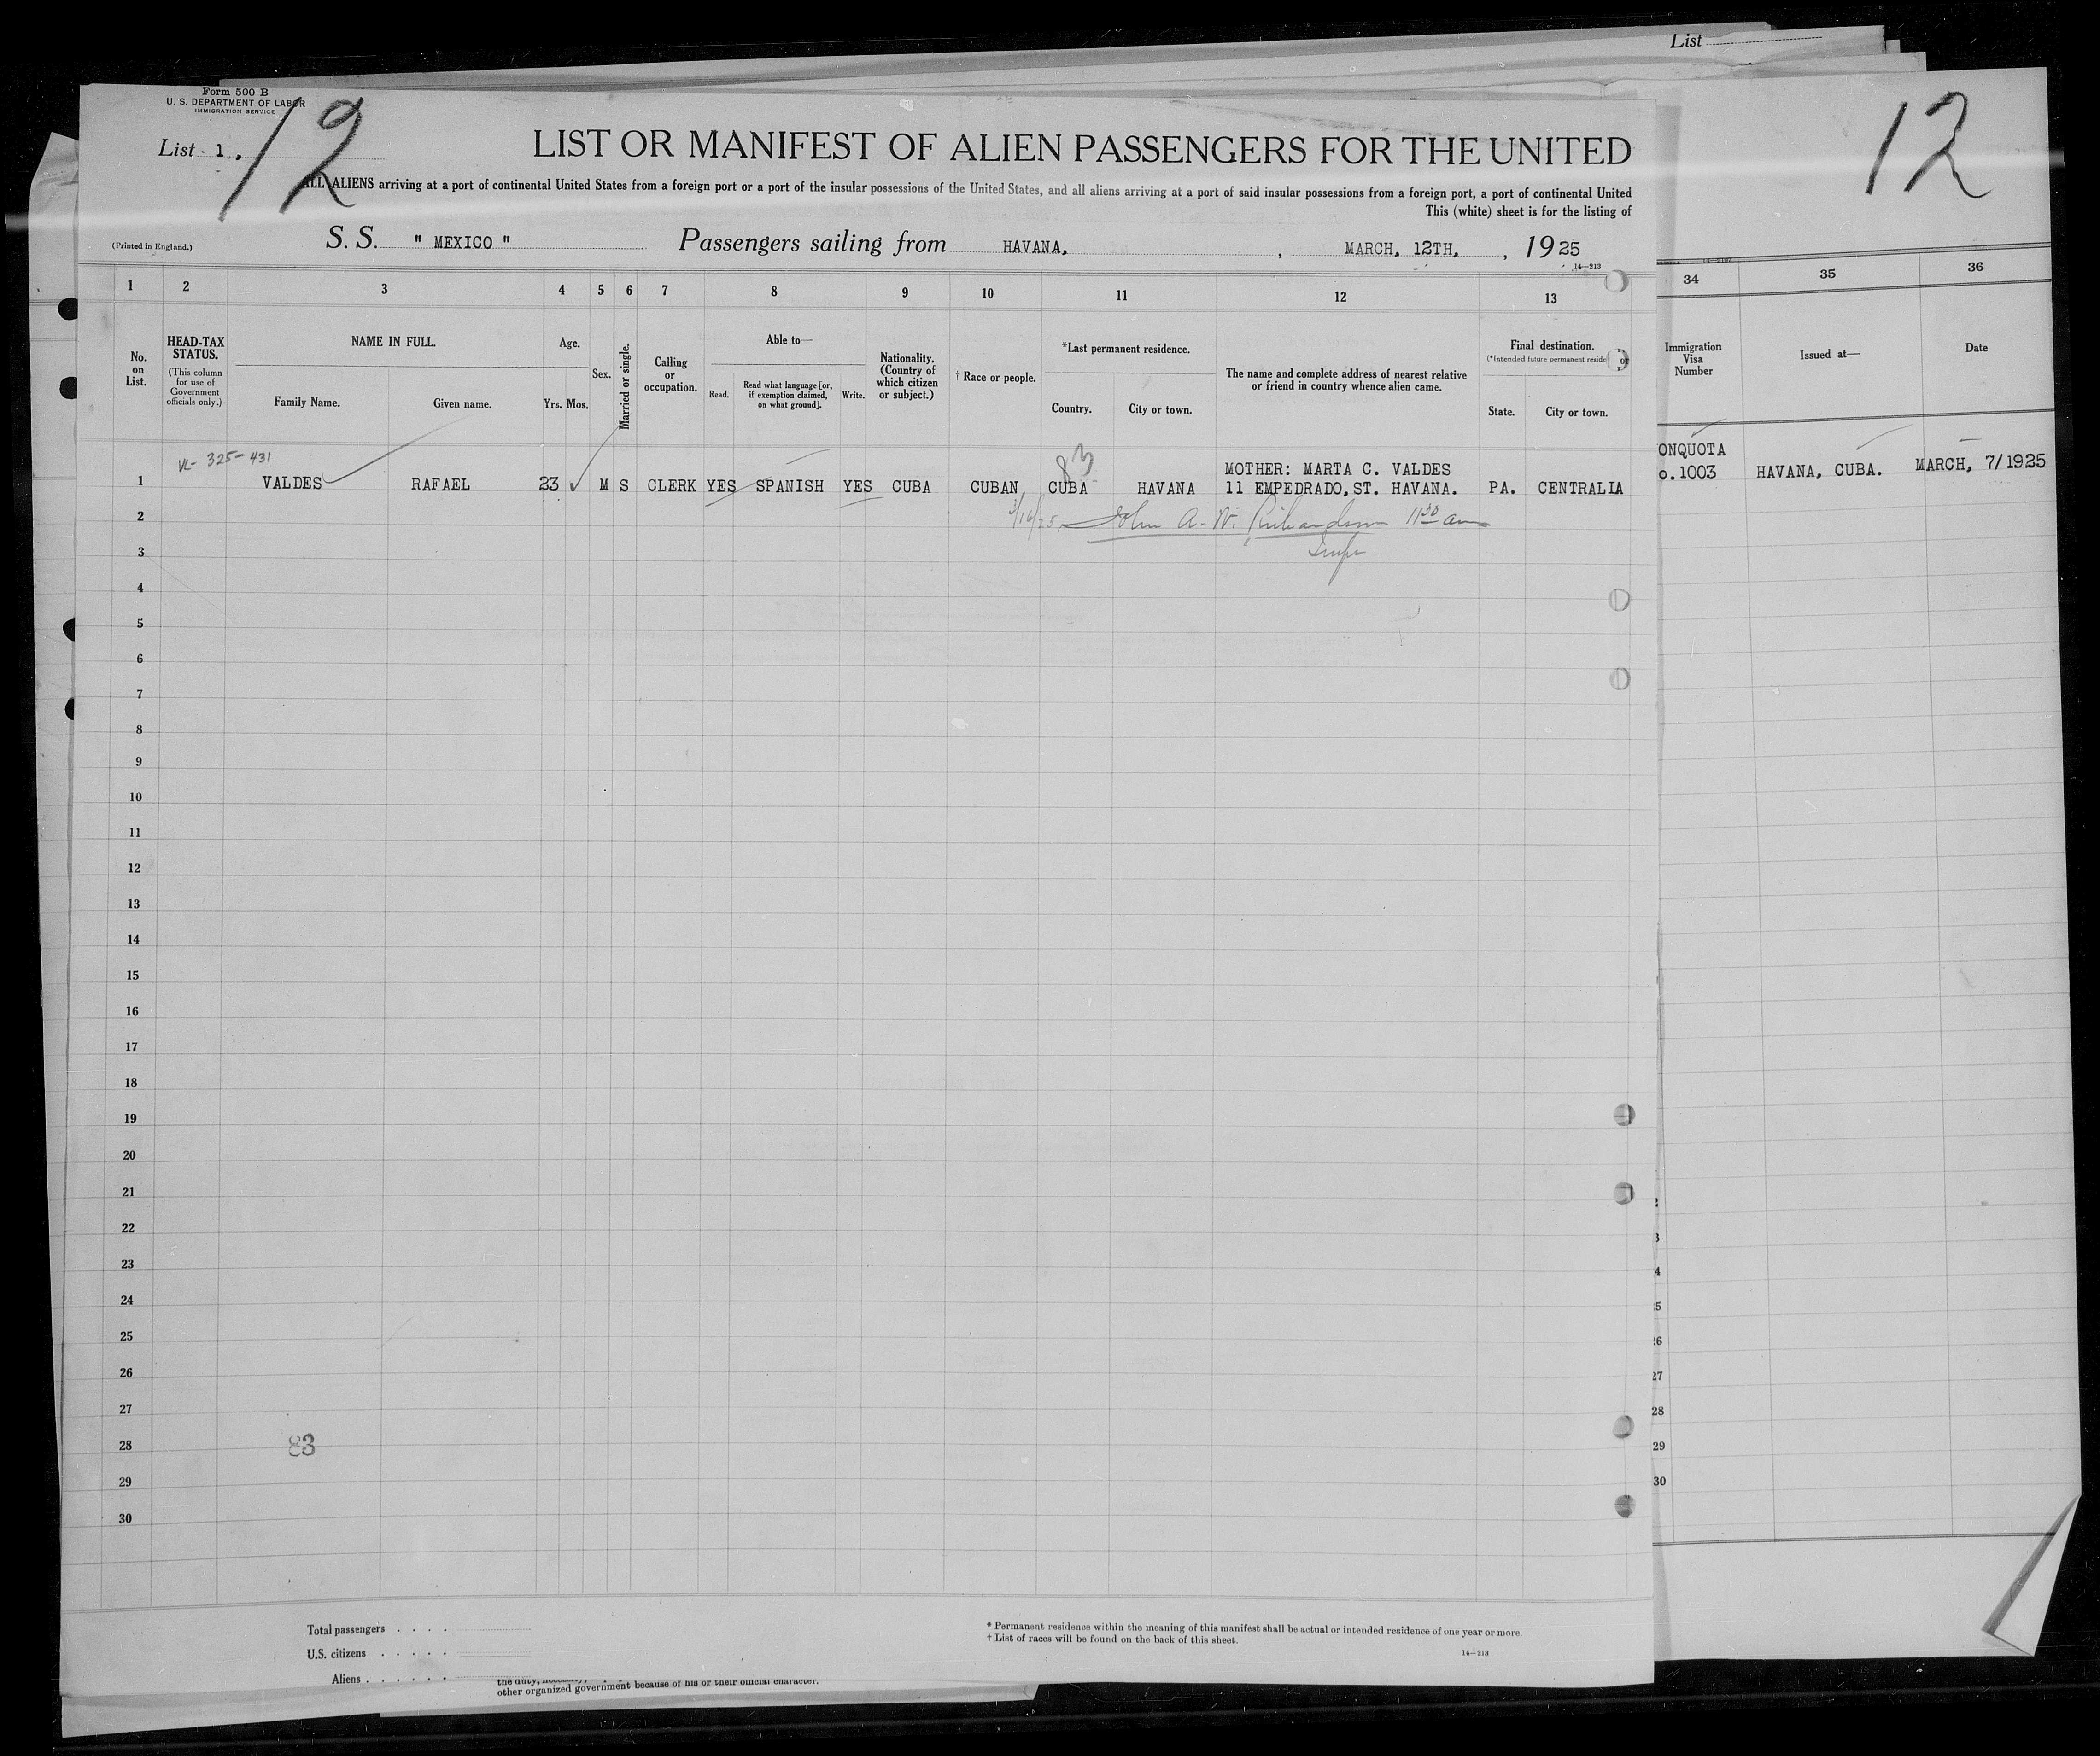 List
Form 500 B
U. S. DEPARTMENT OF LABOR
IMMIGRATION SERVICE
List 1.
12
12
LIST OR MANIFEST OF ALIEN PASSENGERS FOR THE UNITED
ALL ALIENS arriving at a port of continental United States from a foreign port or a port of the insular possessions of the United States, and all aliens arriving at a port of said insular possessions from a foreign port, a port of continental United
This (white) sheet is for the listing of
(Printed in England.)
S. S. " MEXICO " Passengers sailing from HAVANA, , MARCH, 12TH, , 1925
14—213
1 2 3 4 5 6 7 8 9 10 11 12 13 34 35 36
No. on List.
HEAD-TAX STATUS.
(This column for use of Government officials only.)
NAME IN FULL.
Family Name. Given name.
Age.
Yrs. Mos.
Sex.
Married or single.
Calling or occupation.
Able to—
Read.
Read what language [or, if exemption claimed, on what ground].
Write.
Nationality. (Country of which citizen or subject.)
† Race or people.
*Last permanent residence.
Country. City or town.
The name and complete address of nearest relative or friend in country whence alien came.
Final destination.
(*Intended future permanent reside
State. City or town.
Immigration Visa Number
Issued at—
Date
VL- 325-431
83
MOTHER: MARTA C. VALDES
ONQUOTA
1 VALDES RAFAEL 23 M S CLERK YES SPANISH YES CUBA CUBAN CUBA HAVANA 11 EMPEDRADO,ST. HAVANA. PA. CENTRALIA
o.1003 HAVANA, CUBA. MARCH, 7/1925
2
3/16/25 John A. W. Richardson 11 30 am
3
4
5
6
7
8
9
10
11
12
13
14
15
16
17
18
19
20
21
22
23
24
25
26
27
28
83
29
30
2
3
4
5
26
27
28
29
30
Total passengers . . . .
U.S. citizens . . . . .
Aliens . . . . . .
* Permanent residence within the meaning of this manifest shall be actual or intended residence of one year or more.
† List of races will be found on the back of this sheet.
14—213
the duty,
other organized government because of his or their official character.